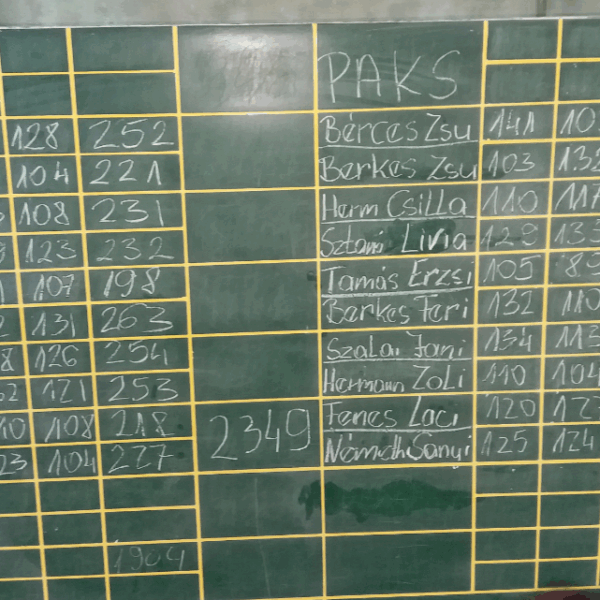 PAKS
128 252 Bérces Zsu 141
104 221 Berkes Zsu 103
108 231 Herm Csilla 110 117
123 232 Livia 129
107 198 Tamás Erzsi 105
131 263 Berkes Feri 132 110
126 254 Szalai Jani 134 113
121 253 Hermann Zoli 110 104
108 218 2349 Fenes Laci 120
104 227 Németh Sanyi 125 124
1904